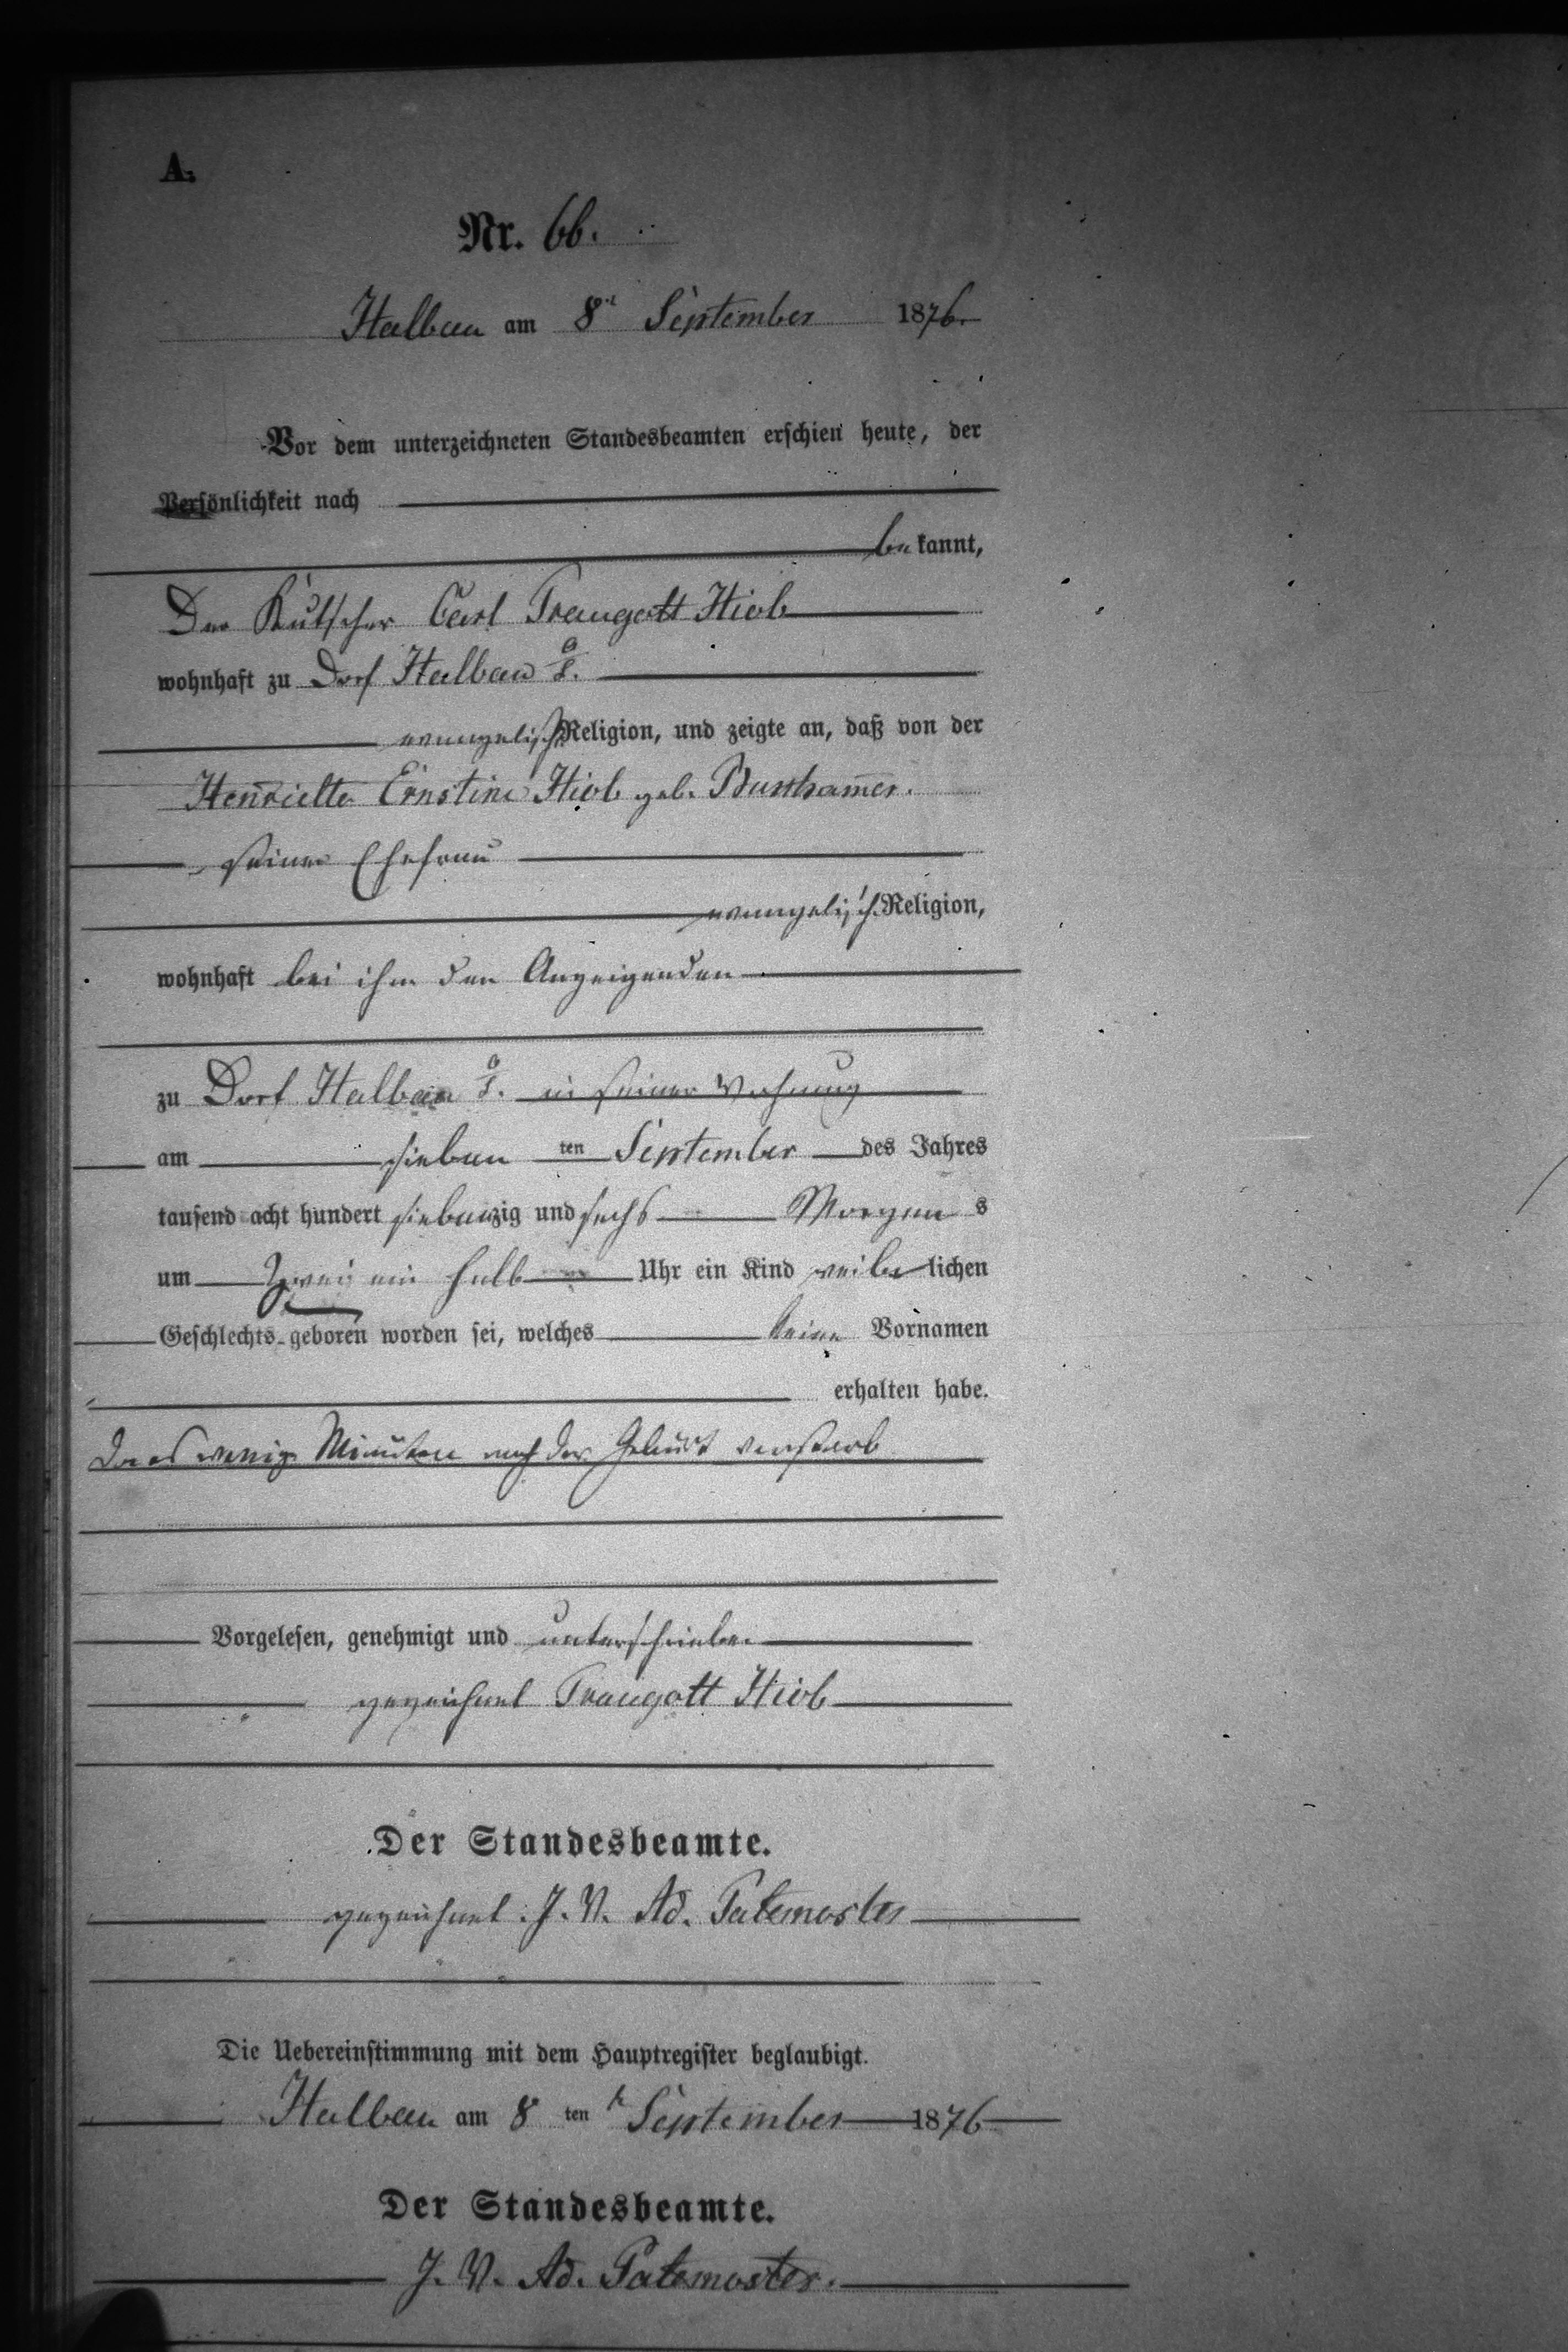 A.
Nr. 66.
Halbau am 8t September 1876.
Vor dem unterzeichneten Standesbeamten erschien heute, der
Persönlichkeit nach
be kannt,
Der Kutscher Carl Traugott Hiob
wohnhaft zu Dorf Halbau
evangelisch Religion, und zeigte an, daß von der
Henriette Ernestine Hiob geb.
seiner Ehefrau
evangelisch. Religion,
wohnhaft bei ihm den Anzeigenden
zu Dorf Halbau in seiner Wohnung
am sieben ten September des Jahres
tausend acht hundert siebenzig und sechs Morgen s
um zwei ein halb Uhr ein Kind weib lichen
Geschlechts geboren worden sei, welches keine Vornamen
erhalten habe.
Da es wenige Minuten nach der Geburt verstarb
Vorgelesen, genehmigt und unterschrieben
gezeichnet Traugott Hiob
Der Standesbeamte.
gezeichnet. J. V. Ad. Paternoster
Die Uebereinstimmung mit dem Hauptregister beglaubigt.
Halbau am 8 ten September 1876
Der Standesbeamte.
J. V. Ad. Paternoster.